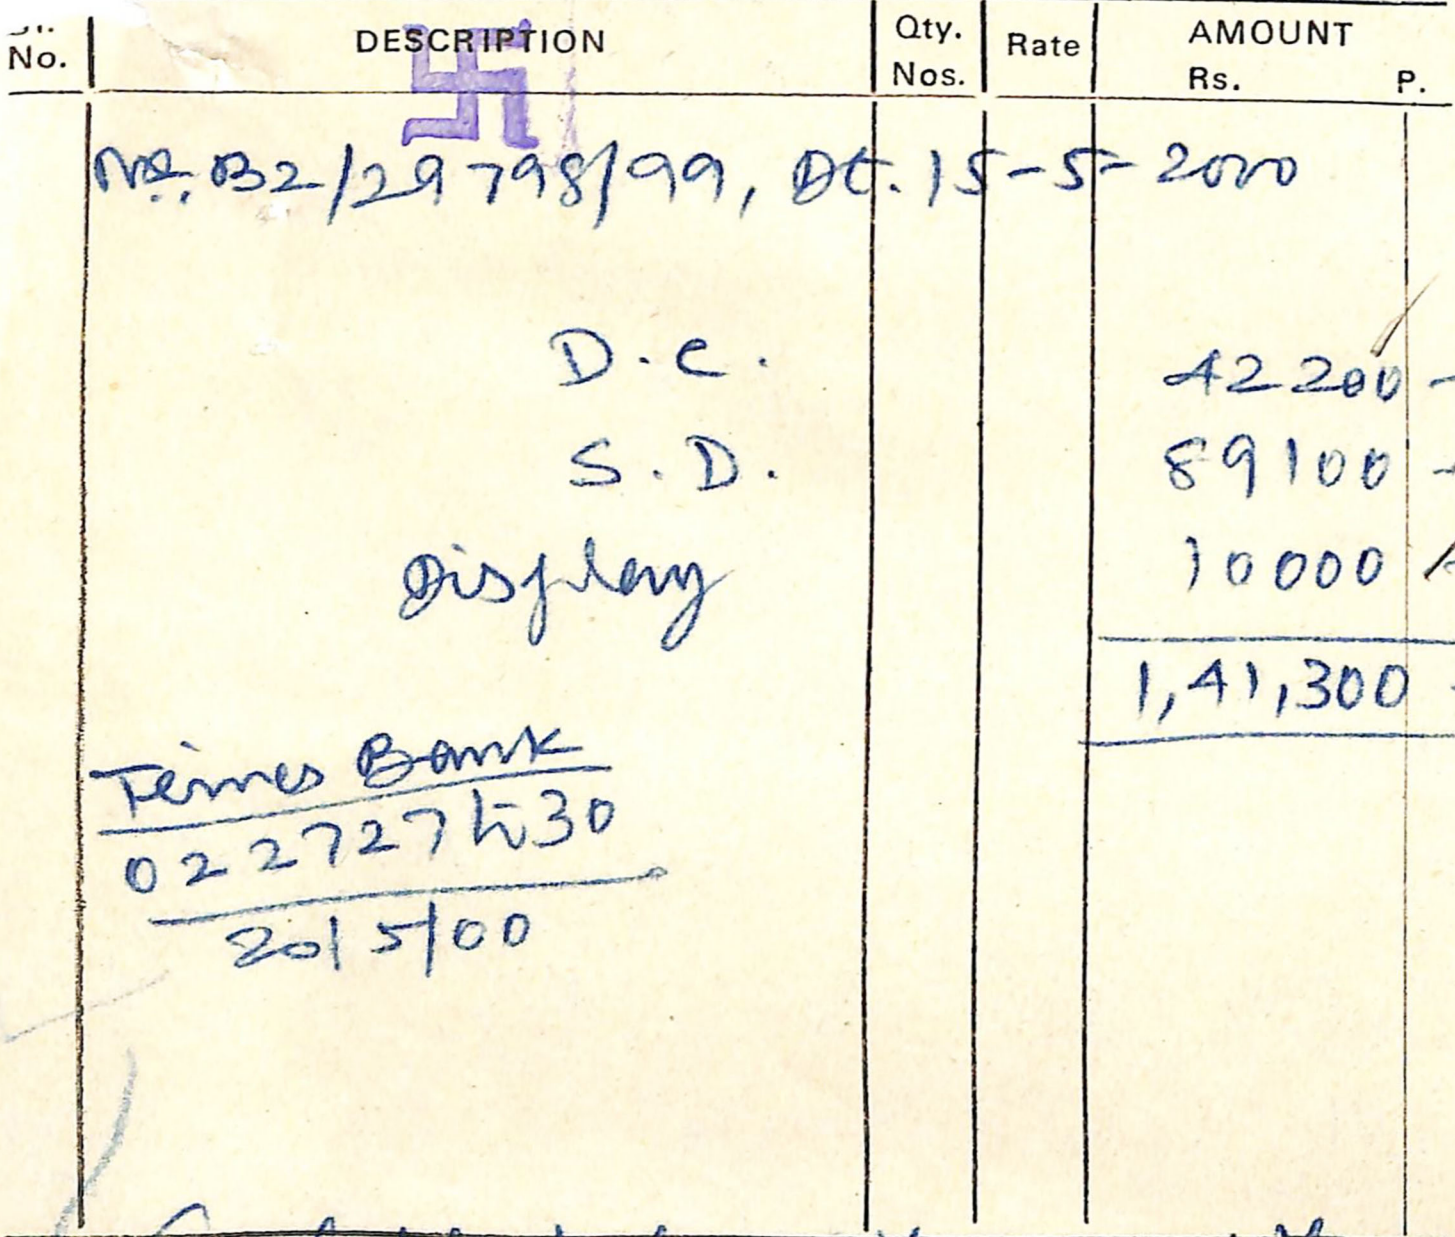 No. DESCRIPTION Qty. Nos. Rate AMOUNT Rs. P.
No. B2/29798/99, Dt. 15-5-2000
D.C. 42200
S.D. 89100
Display 10000
1,41,300
Times Bank
022727 30
20/5/00